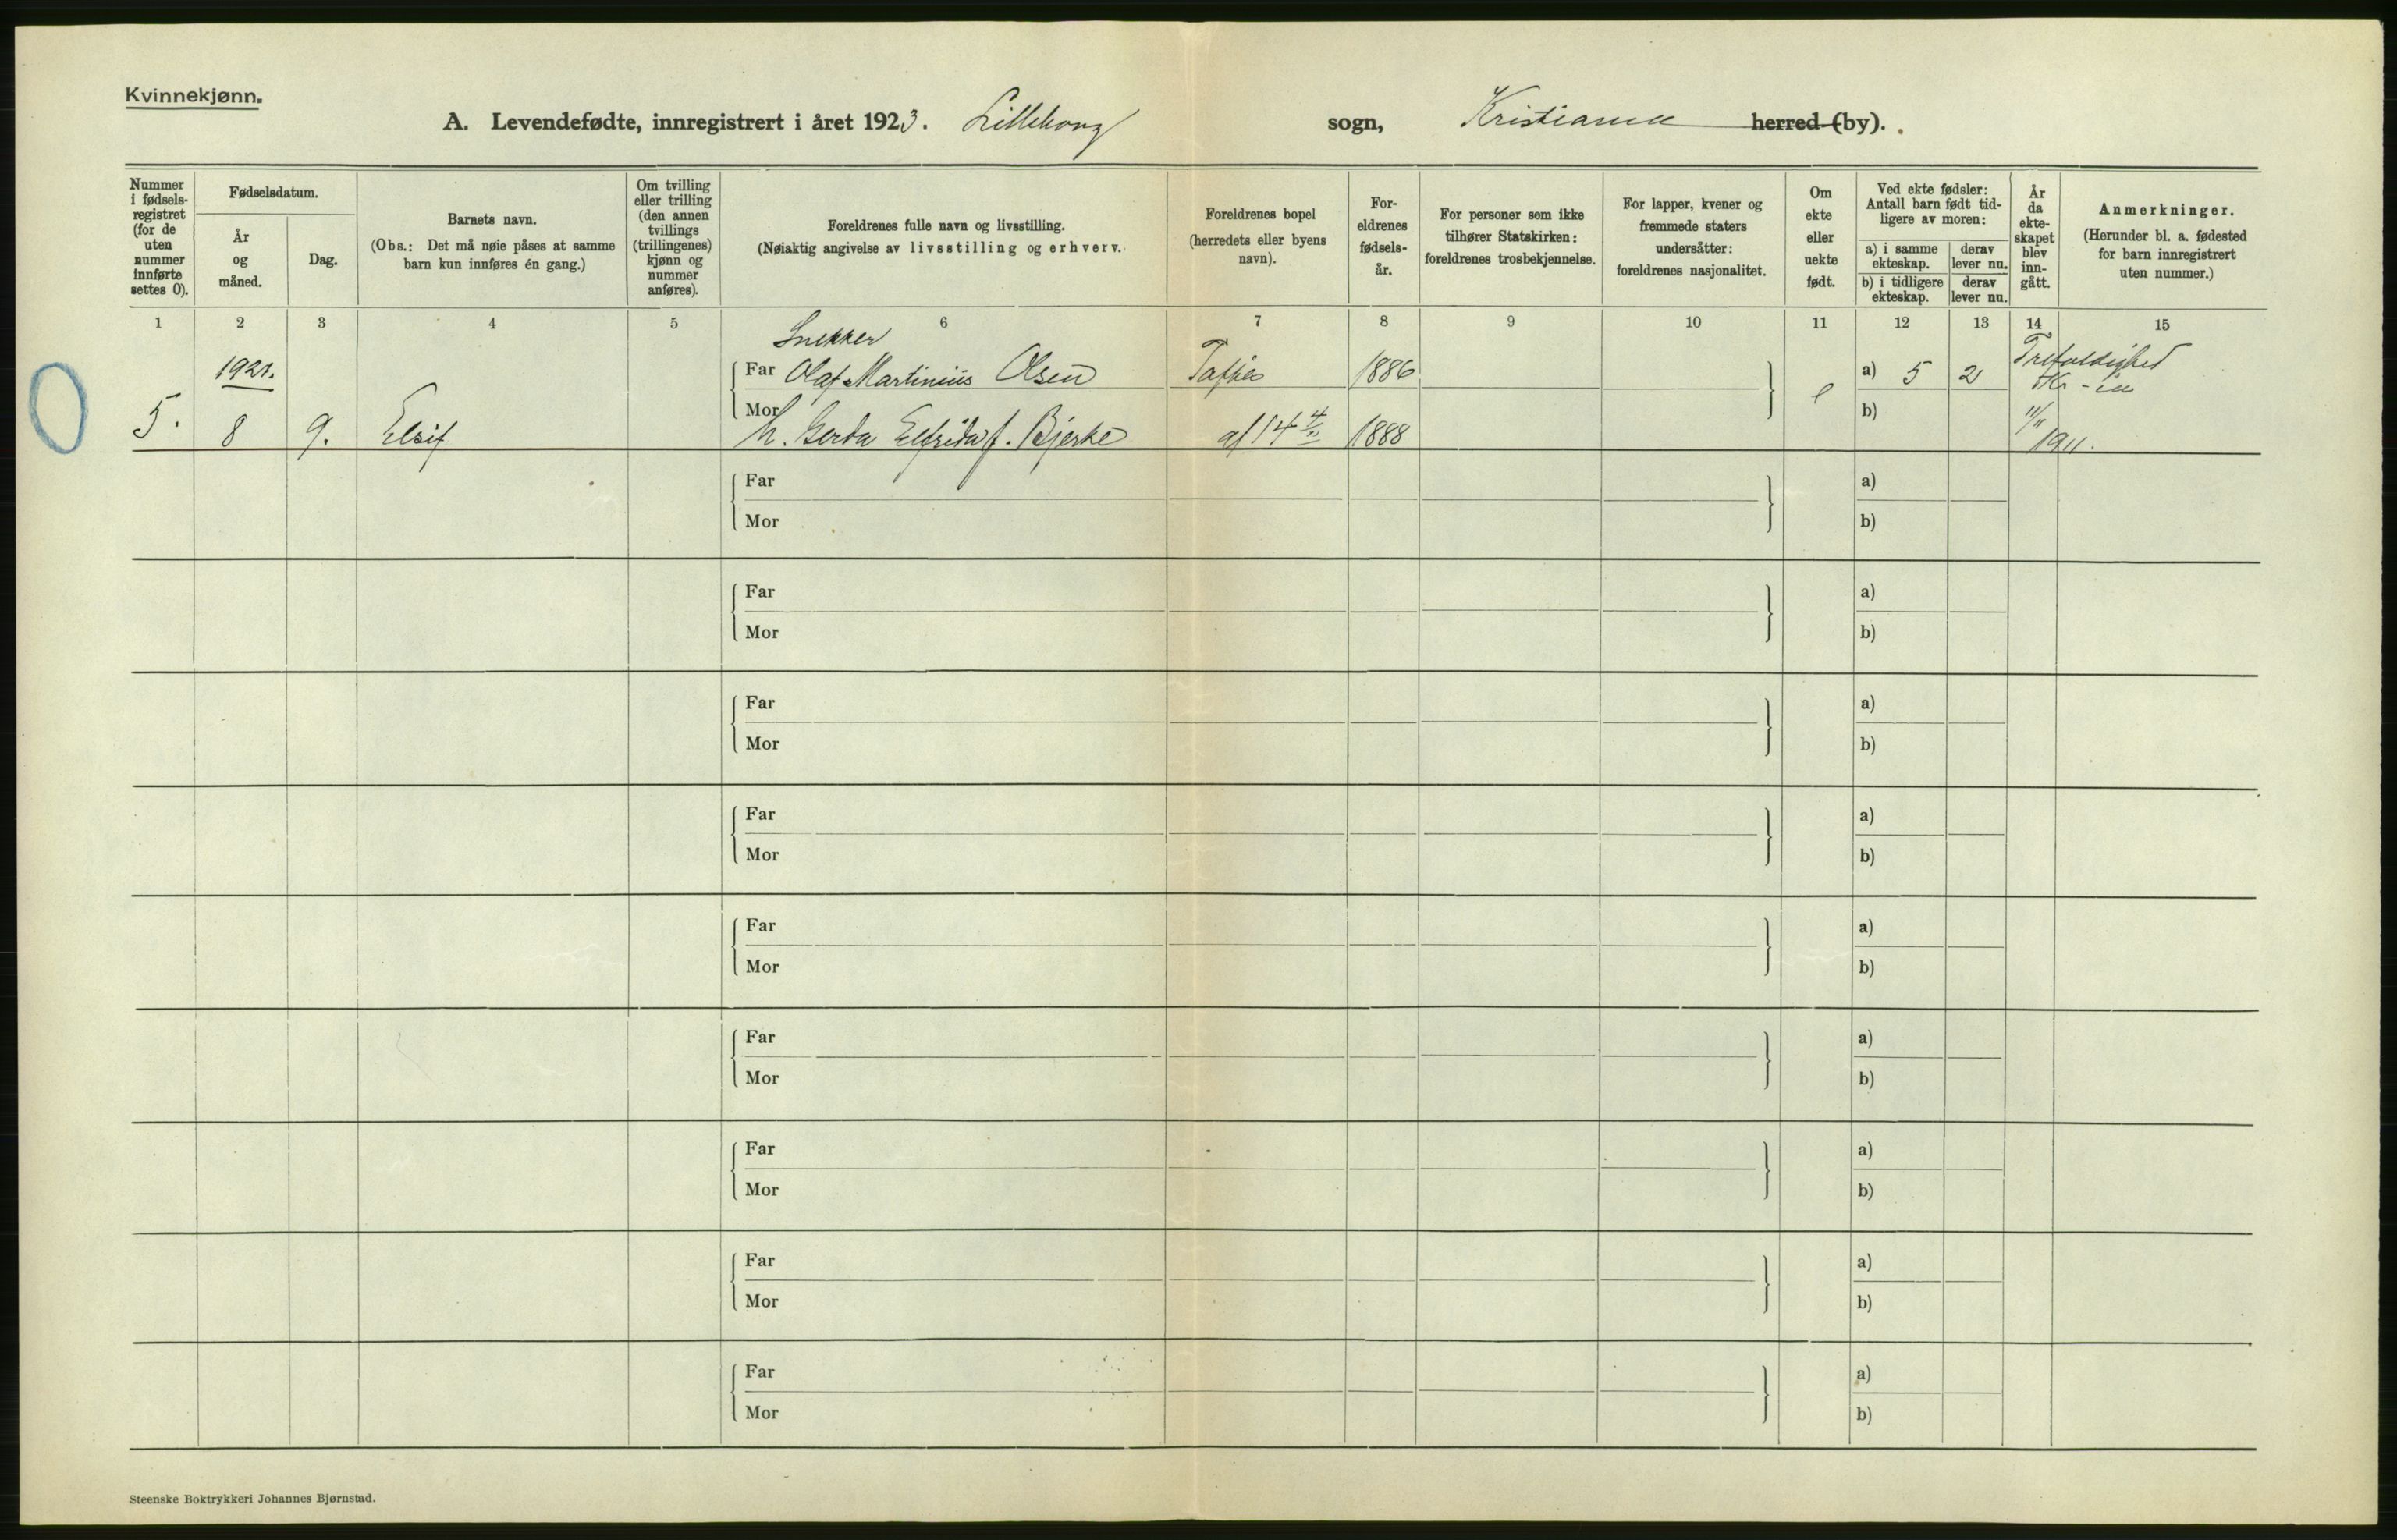 Kvinnekjønn.
A. Levendefødte, innregistrert i året 1923. Lilleborg sogn, Kristiania herred (by).
Nummer i fødsels-registret (for de uten nummer innførte settes 0).
Fødselsdatum.
År og måned.
Dag.
Barnets navn.
(Obs.: Det må nøie påses at samme barn kun innføres én gang.)
Om tvilling eller trilling (den annen tvillings (trillingenes) kjønn og nummer anføres).
Foreldrenes fulle navn og livsstilling.
(Nøiaktig angivelse av livsstilling og erhverv.
Foreldrenes bopel (herredets eller byens navn).
For-eldrenes fødsels-år.
For personer som ikke tilhører Statskirken: foreldrenes trosbekjennelse.
For lapper, kvener og fremmede staters undersåtter: foreldrenes nasjonalitet.
Om ekte eller uekte født.
Ved ekte fødsler: Antall barn født tid-ligere av moren:
a) i samme ekteskap.
derav lever nu.
b) i tidligere ekteskap.
derav lever nu.
År da ekte-skapet blev inn-gått.
Anmerkninger.
(Herunder bl. a. fødested for barn innregistrert uten nummer.)
1 2 3 4 5 6 7 8 9 10 11 12 13 14 15
Snekker
1921. Far Olaf Martinius Olsen 1886 a) 5 2 Trefoldighed
Kr-ia
5. 8 9. Elsif Mor h. Gerda Elfrida f. Bjerke af 14 1888 e b) 11/11 1911.
Far a)
Mor b)
Far a)
Mor b)
Far a)
Mor b)
Far a)
Mor b)
Far a)
Mor b)
Far a)
Mor b)
Far a)
Mor b)
Far a)
Mor b)
Far a)
Mor b)
Steenske Boktrykkeri Johannes Bjørnstad.